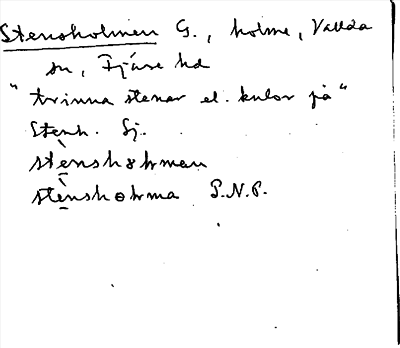 Stensholmen G., holme, Vallda
sn, Fjäre hd
"trinna stenar el. kulor på"
Stenh. Sj.
stènshɵlmen
stènshɵlma P.N.P.